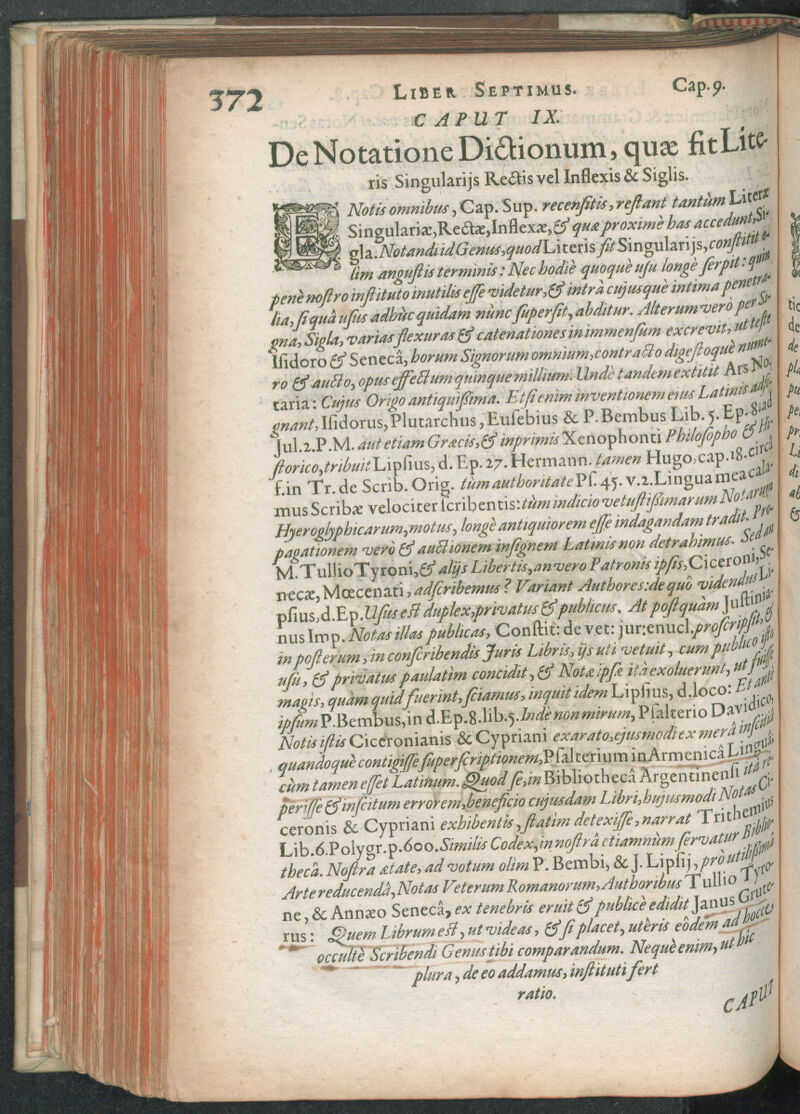 372 LIBER SEPTIMUS. Cap.9.
CAPUT IX.
De Notatione Dictionum, quæ fit Lite-
ris Singularijs Rectis vel Inflexis & Siglis.
EX Notis omnibus, Cap. Sup. recensitis, restant tantùm Literæ
Singulariæ, Rectæ, Inflexæ, & quæ proximè has accedunt, Si-
gla. Notandi id Genus, quod Literis fit Singularijs, constitit o-
lim angustis terminis: Nec hodiè quoquè usu longè serpit: quin
penè nostro instituto inutilis esse videtur, & intrà cujusquè intima penetra-
lia, si quà usus adhuc quidam nùnc superfit, abditur. Alterum verò per Si-
gna, Sigla, varias flexuras & catenationes in immensùm excrevit, ut teste
Isidoro & Senecâ, horum Signorum omnium, contracto digestoquè nume-
ro & aucto, opus effectum quinque millium. Undè tandem extitit Ars No-
taria: Cujus Origo antiquissima. Etsi enim inventionem eius Latinis adsi-
gnant, Isidorus, Plutarchus, Eusebius & P. Bembus Lib. 5. Ep. 8. ad
Jul. 2. P. M. aut etiam Græcis, & inprimis Xenophonti Philosopho & Hi-
storico, tribuit Lipsius, d. Ep. 27. Hermann. tamen Hugo, cap. 18. circà
f. in Tr. de Scrib. Orig. tùm authoritate Ps. 45. v. 2. Lingua mea cala-
mus Scribæ velociter scribentis: tùm indicio vetustissimarum Notarum
Hyeroglyphicarum, motus, longè antiquiorem esse indagandam tradit. Pro-
pagationem verò & auctionem insignem Latinis non detrahimus. Sed an
M. Tullio Tyroni, & alijs Libertis, an vero Patronis ipsis, Ciceroni, Se-
necæ, Mœcenati, adscribemus? Variant Authores: de quò videndus Li-
psius, d. Ep. Usus est duplex, privatus & publicus. At postquàm Justinia-
nus Imp. Notas illas publicas, Constit: de vet: jur: enucl. proscripsit, &
in posterum, in conscribendis Juris Libris, ijs uti vetuit, cum publico isto
usu, & privatus paulatìm concidit, & Notæ ipsæ ità exoluerunt, ut fuisse
magis, quàm quid fuerint, sciamus, inquit idem Lipsius, d. loco: Et antè
ipsum P. Bembus, in d. Ep. 8. lib. 5. Indè non mirum, Psalterio Davidico,
Notis istis Ciceronianis & Cypriani exarato, ejusmodi ex merà inscitiâ
quandoquè contigisse superscriptionem, Psalterium in Armenicâ Linguâ,
cùm tamen esset Latinum. Quod se, in Bibliothecâ Argentinensi ità re-
perisse & inscitum errorem, beneficio cujusdam Libri, hujusmodi Notas Ci-
ceronis & Cypriani exhibentis, statìm detexisse, narrat Trithemius
Lib. 6. Polygr. p. 600. Similis Codex, in nostrà etiamnùm servatur Biblio-
thecâ. Nostra ætate, ad votum olìm P. Bembi, & J. Lipsij, pro utilissimâ
Arte reducendâ, Notas Veterum Romanorum, Authoribus Tullio Tyro-
ne, & Annæo Senecâ, ex tenebris eruit & publicè edidit Janus Grute-
rus: Quem Librum est, ut videas, & si placet, utèris eòdem ad hocce
occultè Scribendi Genus tibi comparandum. Neque enim, ut hic
plura, de eo addamus, instituti fert
ratio.
CAPUT